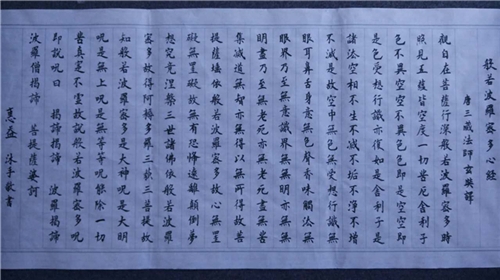 般若波羅蜜多心經
唐三藏法師玄奘譯
觀自在菩薩行深般若波羅蜜多時
照見五蘊皆空度一切苦厄舍利子
色不異空空不異色色即是空空即
是色受想行識亦復如是舍利子是
諸法空相不生不滅不垢不淨不增
不減是故空中無色無受想行識無
眼耳鼻舌身意無色聲香味觸法無
眼界乃至無意識界無無明亦無無
明盡乃至無老死亦無老死盡無苦
集滅道無智亦無得以無所得故菩
提薩埵依般若波羅蜜多故心無罣
礙無罣礙故無有恐怖遠離顛倒夢
想究竟涅槃三世諸佛依般若波羅
蜜多故得阿耨多羅三藐三菩提故
知般若波羅蜜多是大神呪是大明
呪是無上呪是無等等呪能除一切
苦真實不虛故說般若波羅蜜多呪
即說呪曰 揭諦揭諦 波羅揭諦
波羅僧揭諦 菩提薩婆訶
沐手敬書